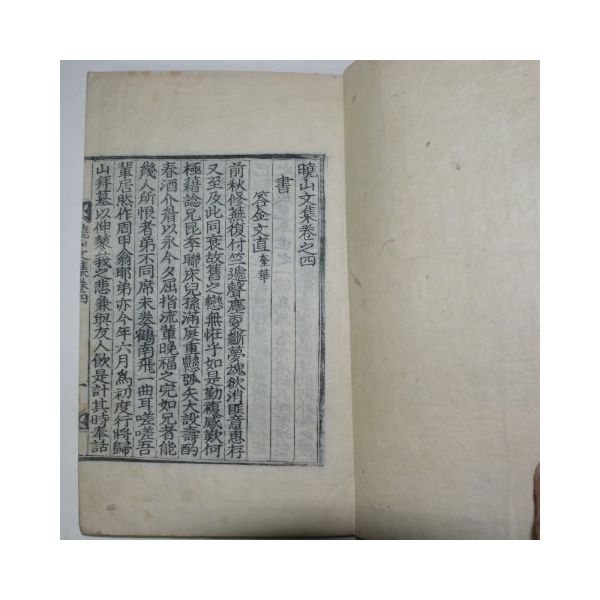 曉山文集卷之四
書
答金文直 奎華
前秋修蕪復付竺遞聲塵夐斷夢魂欲消匪意惠存
又至及此同衰故舊之戀無恠乎如是勤複感歎何
極藉諗兄昆季聯床兒孫滿庭重縣弧矢大設壽酌
春酒介眉以永今夕屈指流輩晩福之完如兄者能
幾人所恨者弟不同席未奏鶴南飛一曲耳嗟嗟吾
輩居然作周甲翁耶弟亦今年六月爲初度行將歸
山拜墓以伸蓼莪之悲兼與友人飮是計其時奉話
曉山文集卷四
一